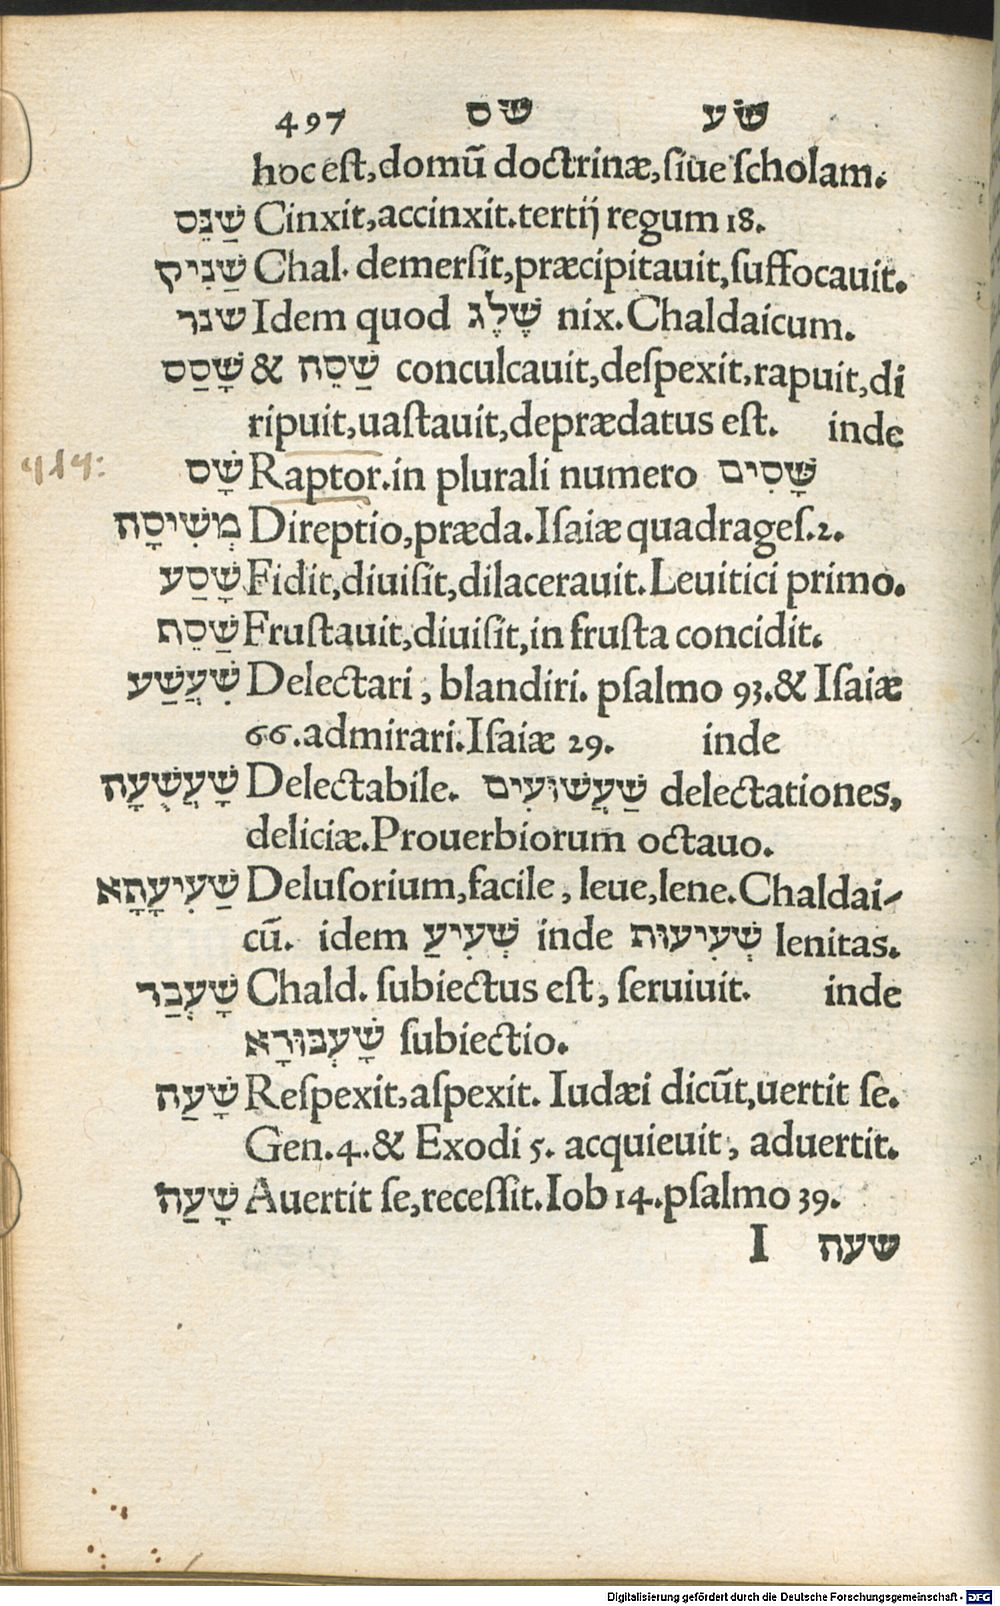 497 שס שע
hoc est, domũ doctrinæ, siue scholam.
שַׁנֵּס Cinxit, accinxit. tertij regum 18.
שַׁנִיק Chal. demersit, præcipitauit, suffocauit.
שנר Idem quod שֶׁלֶג nix. Chaldaicum.
שָׁסַס & שַׁסֵה conculcauit, despexit, rapuit, di
ripuit, uastauit, deprædatus est. inde
שָׁס Raptor. in plurali numero שָׁסִים
מְשִׁיסָה Direptio, præda. Isaiæ quadrages. 2.
שָׁסַע Fidit, diuisit, dilacerauit. Leuitici primo.
שַׁסֵּה Frustauit, diuisit, in frusta concidit.
שִׁעֲשַׁע Delectari, blandiri. psalmo 93. & Isaiæ
66. admirari. Isaiæ 29. inde
שָׁעֲשֻׁעָה Delectabile. שַׁעֲשׁוּעִים delectationes,
deliciæ. Prouerbiorum octauo.
שַׁעִיעָתָא Delusorium, facile, leue, lene. Chaldai-
cũ. idem שְׁעִיעַ inde שְׁעִיעוּת lenitas.
שָׁעְבַּר Chald. subiectus est, seruiuit. inde
שָׁעְבּוּרָא subiectio.
שָׁעַה Respexit, aspexit. Iudæi dicũt, uertit se.
Gen. 4. & Exodi 5. acquieuit, aduertit.
שָׁעַה Auertit se, recessit. Iob 14. psalmo 39.
I שעה
Digitalisierung gefördert durch die Deutsche Forschungsgemeinschaft - DFG